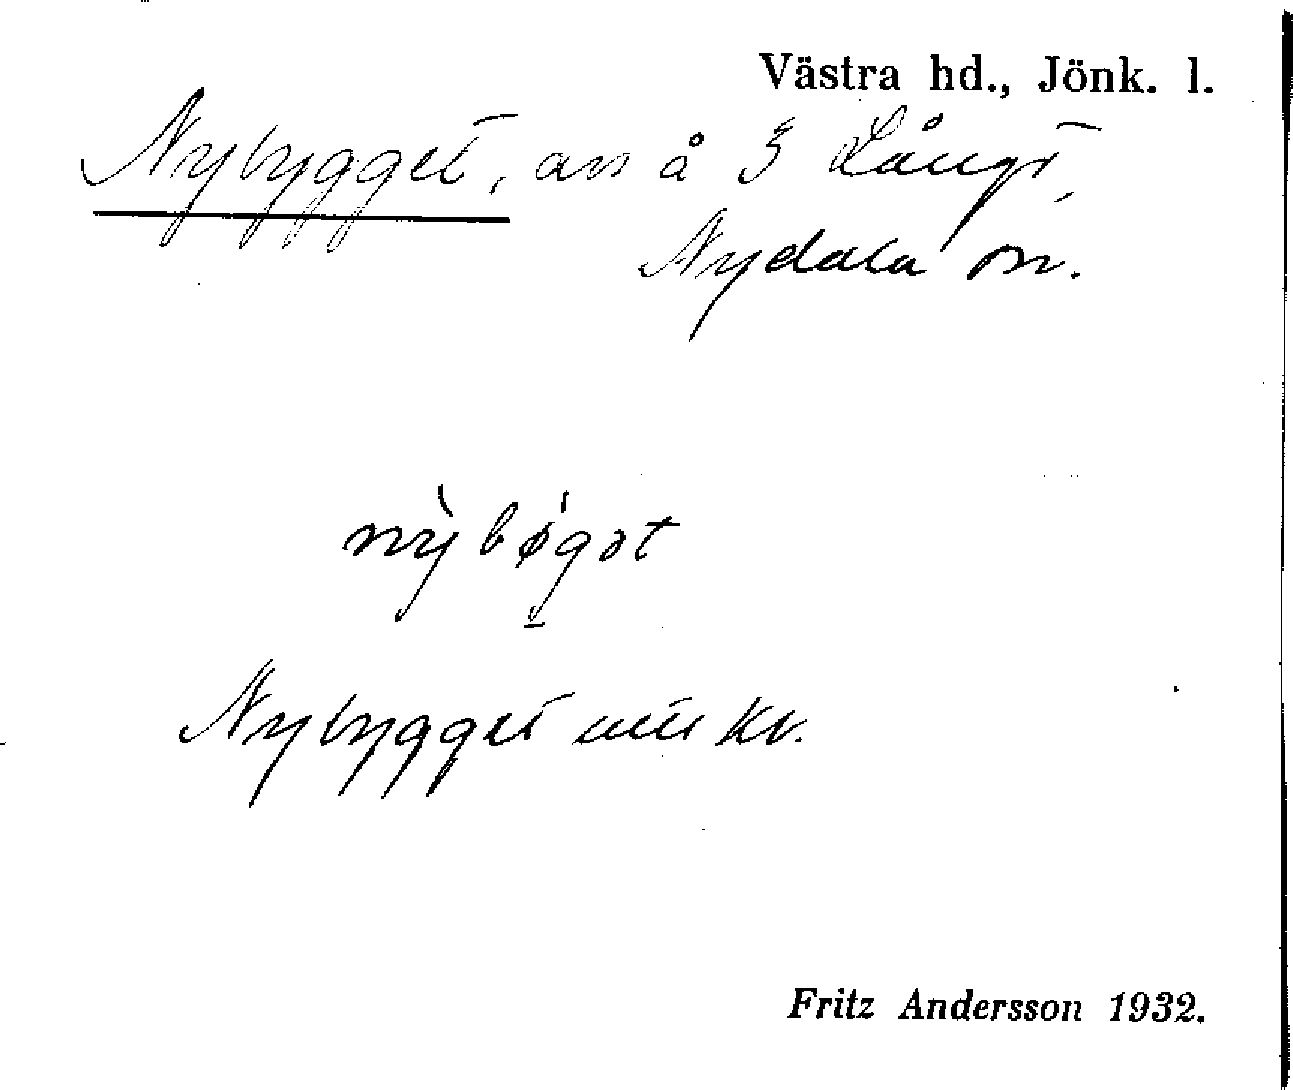 Västra hd., Jönk. l.
Nybygget, avs å § Långö,
Nydala sn.
nỳbǿgət
Nybygget utu kv.
Fritz Andersson 1932.